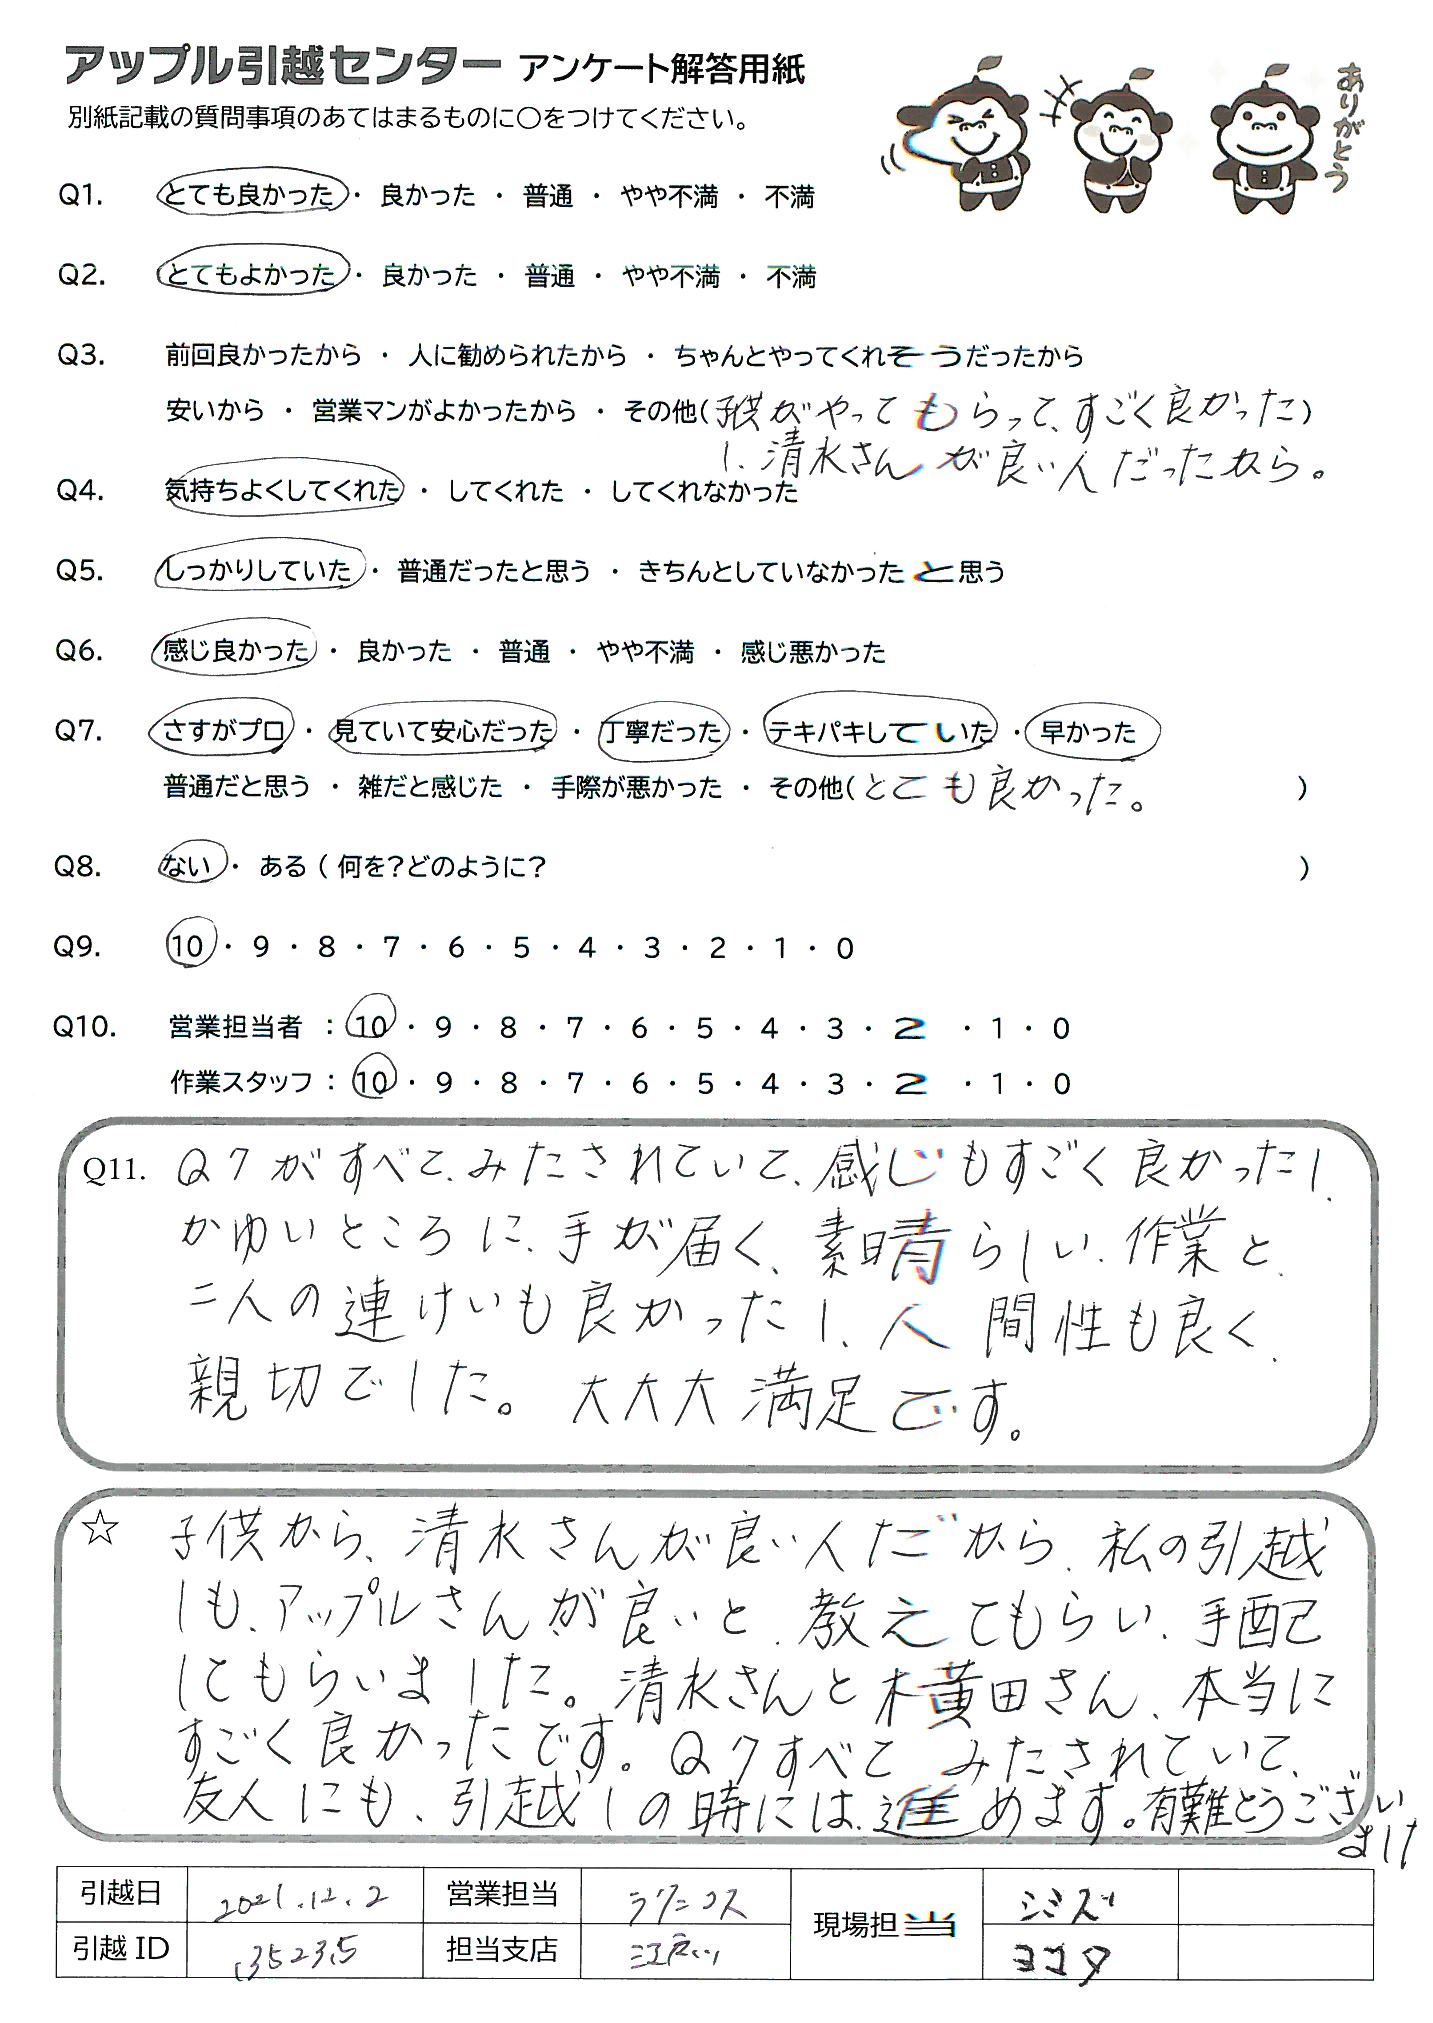 アップル引越センター アンケート解答用紙
別紙記載の質問事項のあてはまるものに○をつけてください。
ありがとう
Q1. とても良かった ・ 良かった ・ 普通 ・ やや不満 ・ 不満
Q2. とてもよかった ・ 良かった ・ 普通 ・ やや不満 ・ 不満
Q3. 前回良かったから ・ 人に勧められたから ・ ちゃんとやってくれそうだったから
安いから ・ 営業マンがよかったから ・ その他(子供がやってもらって、すごく良かった)
し、清水さんが良い人だったから。
Q4. 気持ちよくしてくれた ・ してくれた ・ してくれなかった
Q5. しっかりしていた ・ 普通だったと思う ・ きちんとしていなかったと思う
Q6. 感じ良かった ・ 良かった ・ 普通 ・ やや不満 ・ 感じ悪かった
Q7. さすがプロ ・ 見ていて安心だった ・ 丁寧だった ・ テキパキしていた ・ 早かった
普通だと思う ・ 雑だと感じた ・ 手際が悪かった ・ その他(とても良かった。 )
Q8. ない ・ ある ( 何を?どのように? )
Q9. 10 ・ 9 ・ 8 ・ 7 ・ 6 ・ 5 ・ 4 ・ 3 ・ 2 ・ 1 ・ 0
Q10. 営業担当者 : 10 ・ 9 ・ 8 ・ 7 ・ 6 ・ 5 ・ 4 ・ 3 ・ 2 ・ 1 ・ 0
作業スタッフ : 10 ・ 9 ・ 8 ・ 7 ・ 6 ・ 5 ・ 4 ・ 3 ・ 2 ・ 1 ・ 0
Q11. Q7がすべて、みたされていて、感じもすごく良かったし、
かゆいところに、手が届く、素晴らしい、作業と、
二人の連けいも良かったし、人間性も良く、
親切でした。大大大満足です。
☆ 子供から、清水さんが良い人だから、私の引越
しも、アップルさんが良いと、教えてもらい、手配
してもらいました。清水さんと横田さん、本当に
すごく良かったです。Q7すべて みたされていて、
友人にも、引越しの時には、進めます。有難とうござい
ました
引越日 2021.12.2 営業担当 ラクニコス 現場担当 シミズ
引越ID 35235 担当支店 ヨコタ